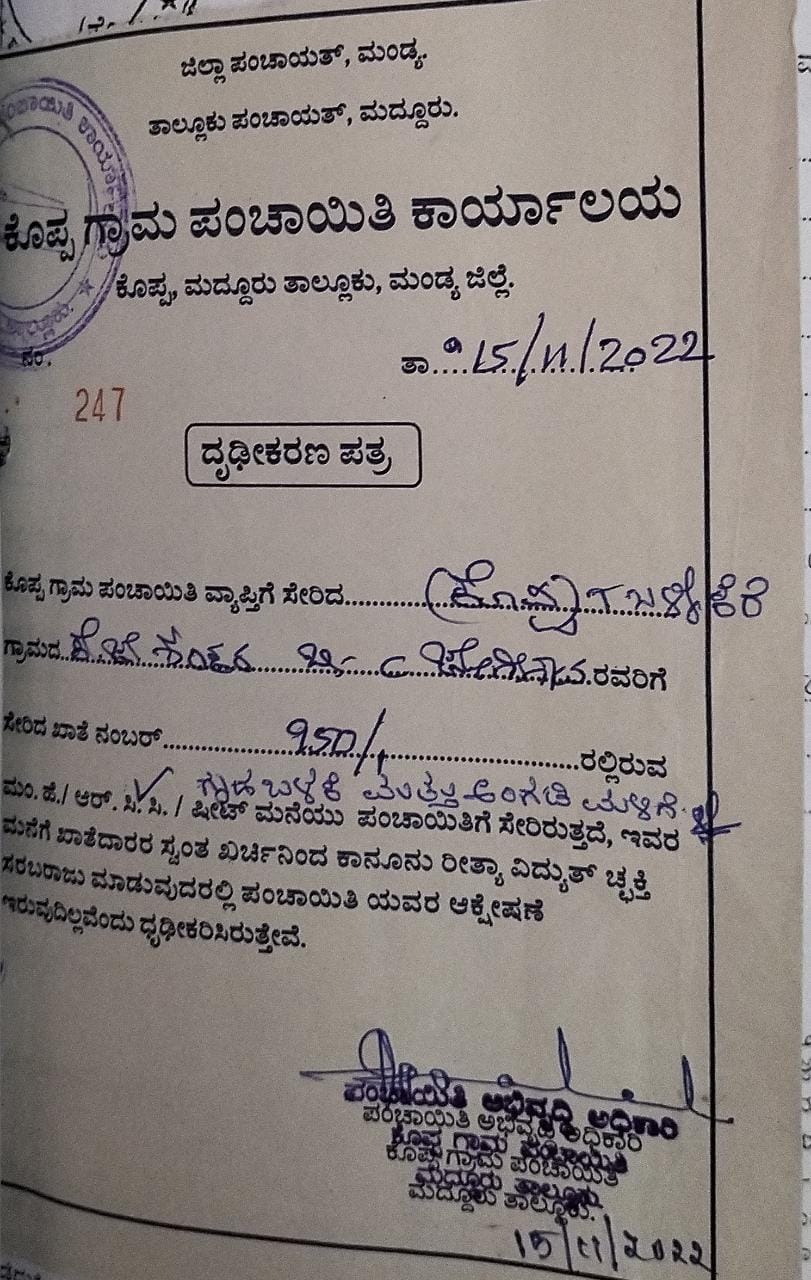 ಜಿಲ್ಲಾ ಪಂಚಾಯತ್, ಮಂಡ್ಯ.
ತಾಲ್ಲೂಕು ಪಂಚಾಯತ್, ಮದ್ದೂರು.
ಕೊಪ್ಪ ಗ್ರಾಮ ಪಂಚಾಯಿತಿ ಕಾರ್ಯಾಲಯ
ಕೊಪ್ಪ, ಮದ್ದೂರು ತಾಲ್ಲೂಕು, ಮಂಡ್ಯ ಜಿಲ್ಲೆ.
ನಂ.
ತಾ....15/11/2022
247
ದೃಢೀಕರಣ ಪತ್ರ
ಕೊಪ್ಪ ಗ್ರಾಮ ಪಂಚಾಯಿತಿ ವ್ಯಾಪ್ತಿಗೆ ಸೇರಿದ
ಗ್ರಾಮದ ರವರಿಗೆ
ಸೇರಿದ ಖಾತೆ ನಂಬರ್ ರಲ್ಲಿರುವ
ಗೃಹ ಬಳಕೆ ಮತ್ತು ಅಂಗಡಿ ಮಳಿಗೆ
ಮಂ. ಹೆ./ ಆರ್. ಸಿ. ಸಿ. / ಷೀಟ್ ಮನೆಯು ಪಂಚಾಯಿತಿಗೆ ಸೇರಿರುತ್ತದೆ, ಇವರ
ಮನೆಗೆ ಖಾತೆದಾರರ ಸ್ವಂತ ಖರ್ಚಿನಿಂದ ಕಾನೂನು ರೀತ್ಯಾ ವಿದ್ಯುತ್ ಚ್ಛಕ್ತಿ
ಸರಬರಾಜು ಮಾಡುವುದರಲ್ಲಿ ಪಂಚಾಯಿತಿ ಯವರ ಆಕ್ಷೇಷಣೆ
ಇರುವುದಿಲ್ಲವೆಂದು ಧೃಢೀಕರಿಸಿರುತ್ತೇವೆ.
ಪಂಚಾಯಿತಿ ಅಭಿವೃದ್ಧಿ ಅಧಿಕಾರಿ
ಕೊಪ್ಪ ಗ್ರಾಮ ಪಂಚಾಯಿತಿ
ಮದ್ದೂರು ತಾಲ್ಲೂಕು.
15/11/2022